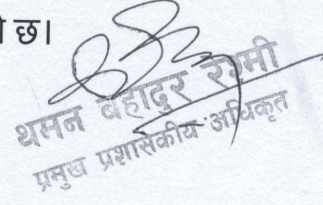 छ।
थमन बहादुर रेश्मी
प्रमुख प्रशासकीय अधिकृत